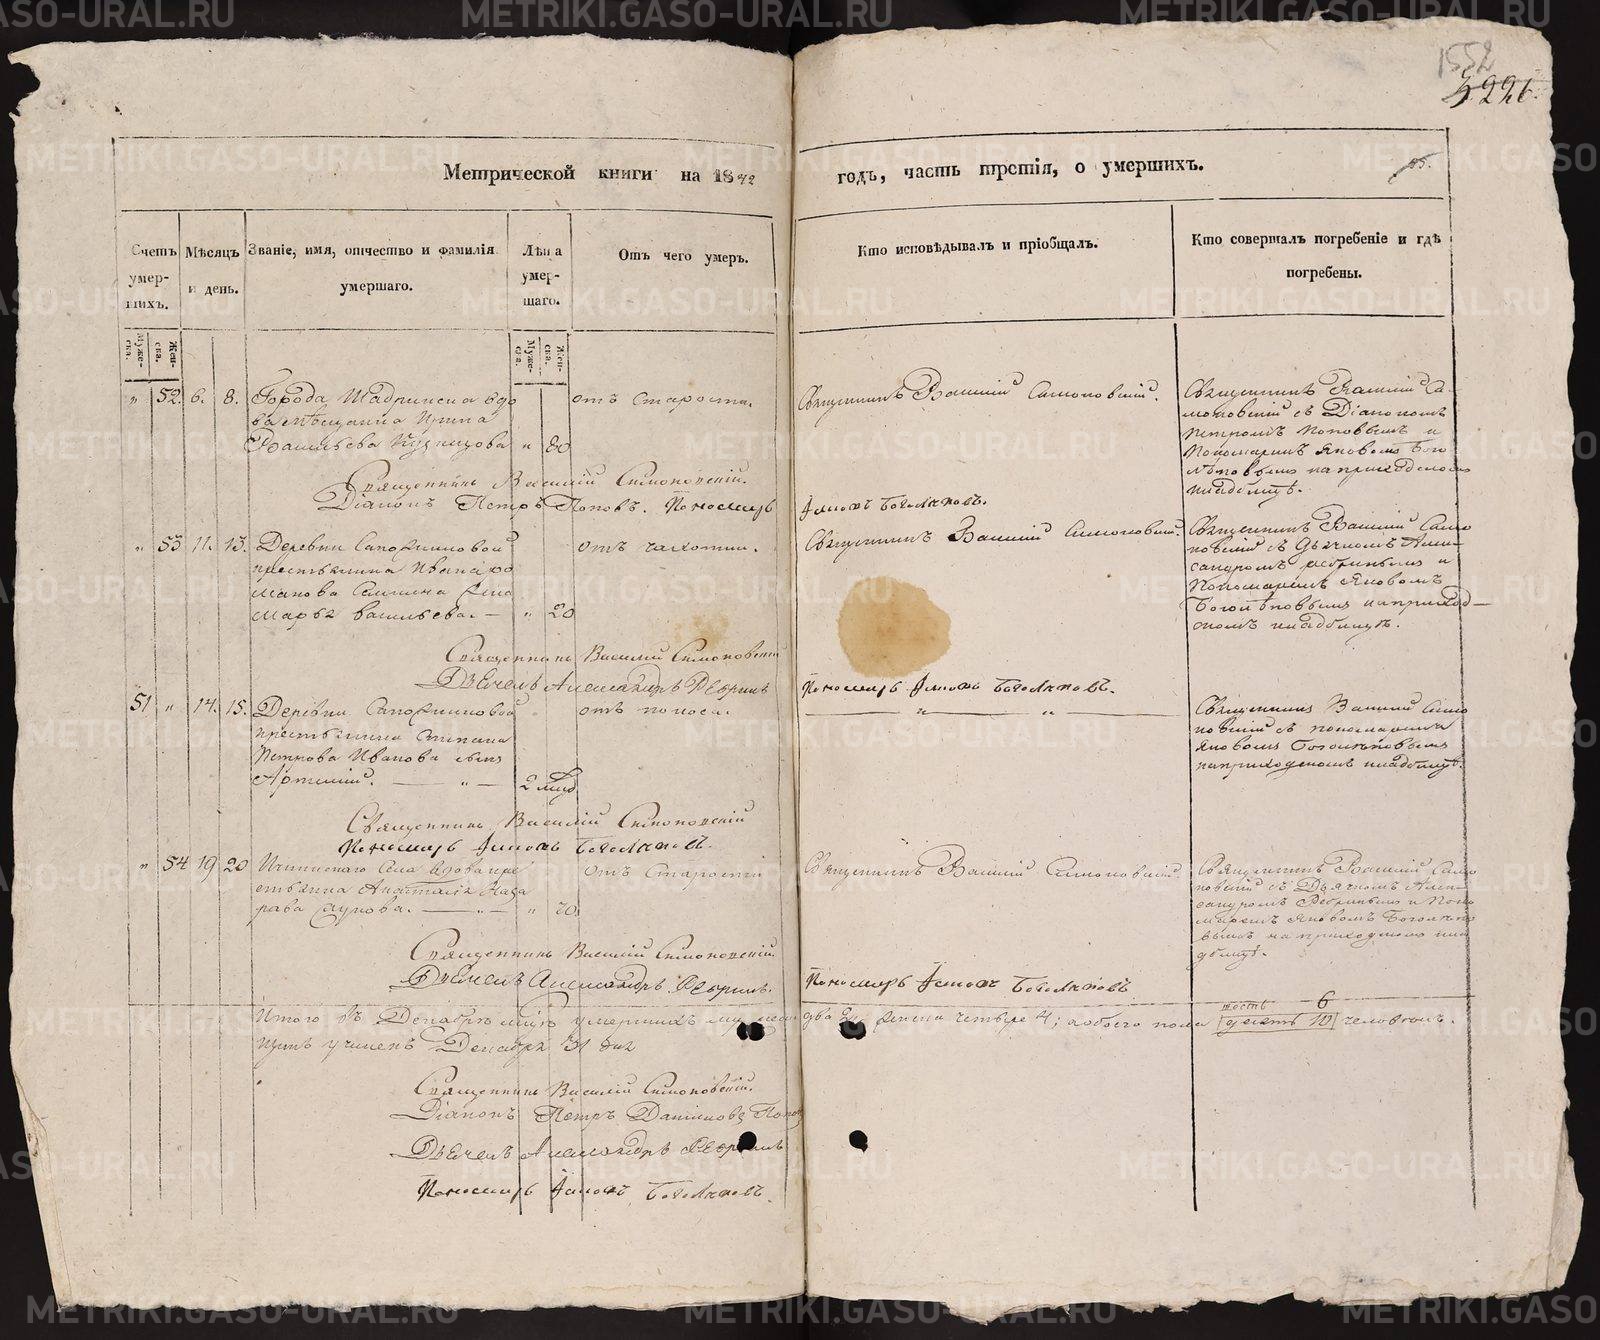 1552
3226.
Метрической книги на 1842
годъ, часть третія, о умершихъ.
Счетъ умер-шихъ.
Мѣсяцъ и день.
Званіе, имя, отчество и фамилія умершаго.
Лѣта умер-шаго.
Отъ чего умеръ.
Кто исповѣдывалъ и пріобщалъ.
Кто совершалъ погребеніе и гдѣ погребены.
Муже-ска.
Жен-ска.
Муже-ска.
Жен-ска.
„ 52. 6. 8. Города Шадринска вдо
ва мѣщанка Ирина
Васильева „ 80
отъ старости.
Священникъ Василій Симоновскій.
Священникъ Василій Си-
моновскій съ Діакономъ
Петромъ Поповымъ и
Пономаремъ Яковомъ Бого
лѣповымъ на приходскомъ
кладбищѣ.
Священникъ Василій Симоновскій.
Діаконъ Петръ Поповъ. Пономарь
Іаковъ Боголѣповъ.
„ 53 11. 13. Деревни Сапожниковой
крестьянина Ивана
жена
Марѳа Васильева. — „ 20
отъ чахотки.
Священникъ Василій Симоновскій.
Священникъ Василій Симо
новскій съ Дьячкомъ Алек-
сандромъ и
Пономаремъ Яковомъ
Боголѣповымъ на приход-
скомъ кладбищѣ.
Священникъ Василій Симоновскій
Дьячекъ Александръ
Пономарь Іаковъ Боголѣповъ.
51 „ 14. 15. Деревни Сапожниковой
крестьянина Степана
Петрова Иванова сынъ
Артемій. — „ — 2 нед
отъ поноса.
— „ — „ —
Священникъ Василій Симо
новскій съ пономаремъ
Яковомъ Боголѣповымъ
на приходскомъ кладбищѣ.
Священникъ Василій Симоновскій
Пономарь Іаковъ Боголѣповъ.
„ 54 19 20 села вдова кре
стьянка Анастасія Наза
рова — „ — „ 70.
отъ старости
Священникъ Василій Симоновскій.
Священникъ Василій Симо
новскій съ Дьячкомъ Алек-
сандромъ и Поно
маремъ Яковомъ Боголѣпо
вымъ на приходскомъ кла
дбищѣ.
Священникъ Василій Симоновскій.
Дьячекъ Александръ
Пономарь Іаковъ Боголѣповъ
Итого въ Декабрѣ мцѣ умершихъ два 2, женска четыре 4; а обоего пола шесть 6 десять 10 человѣкъ.
учиненъ Декабря 31 дня
Священникъ Василій Симоновскій.
Діаконъ Петръ Поповъ
Дьячекъ Александръ
Пономарь Іаковъ Боголѣповъ.
METRIKI.GASO-URAL.RU